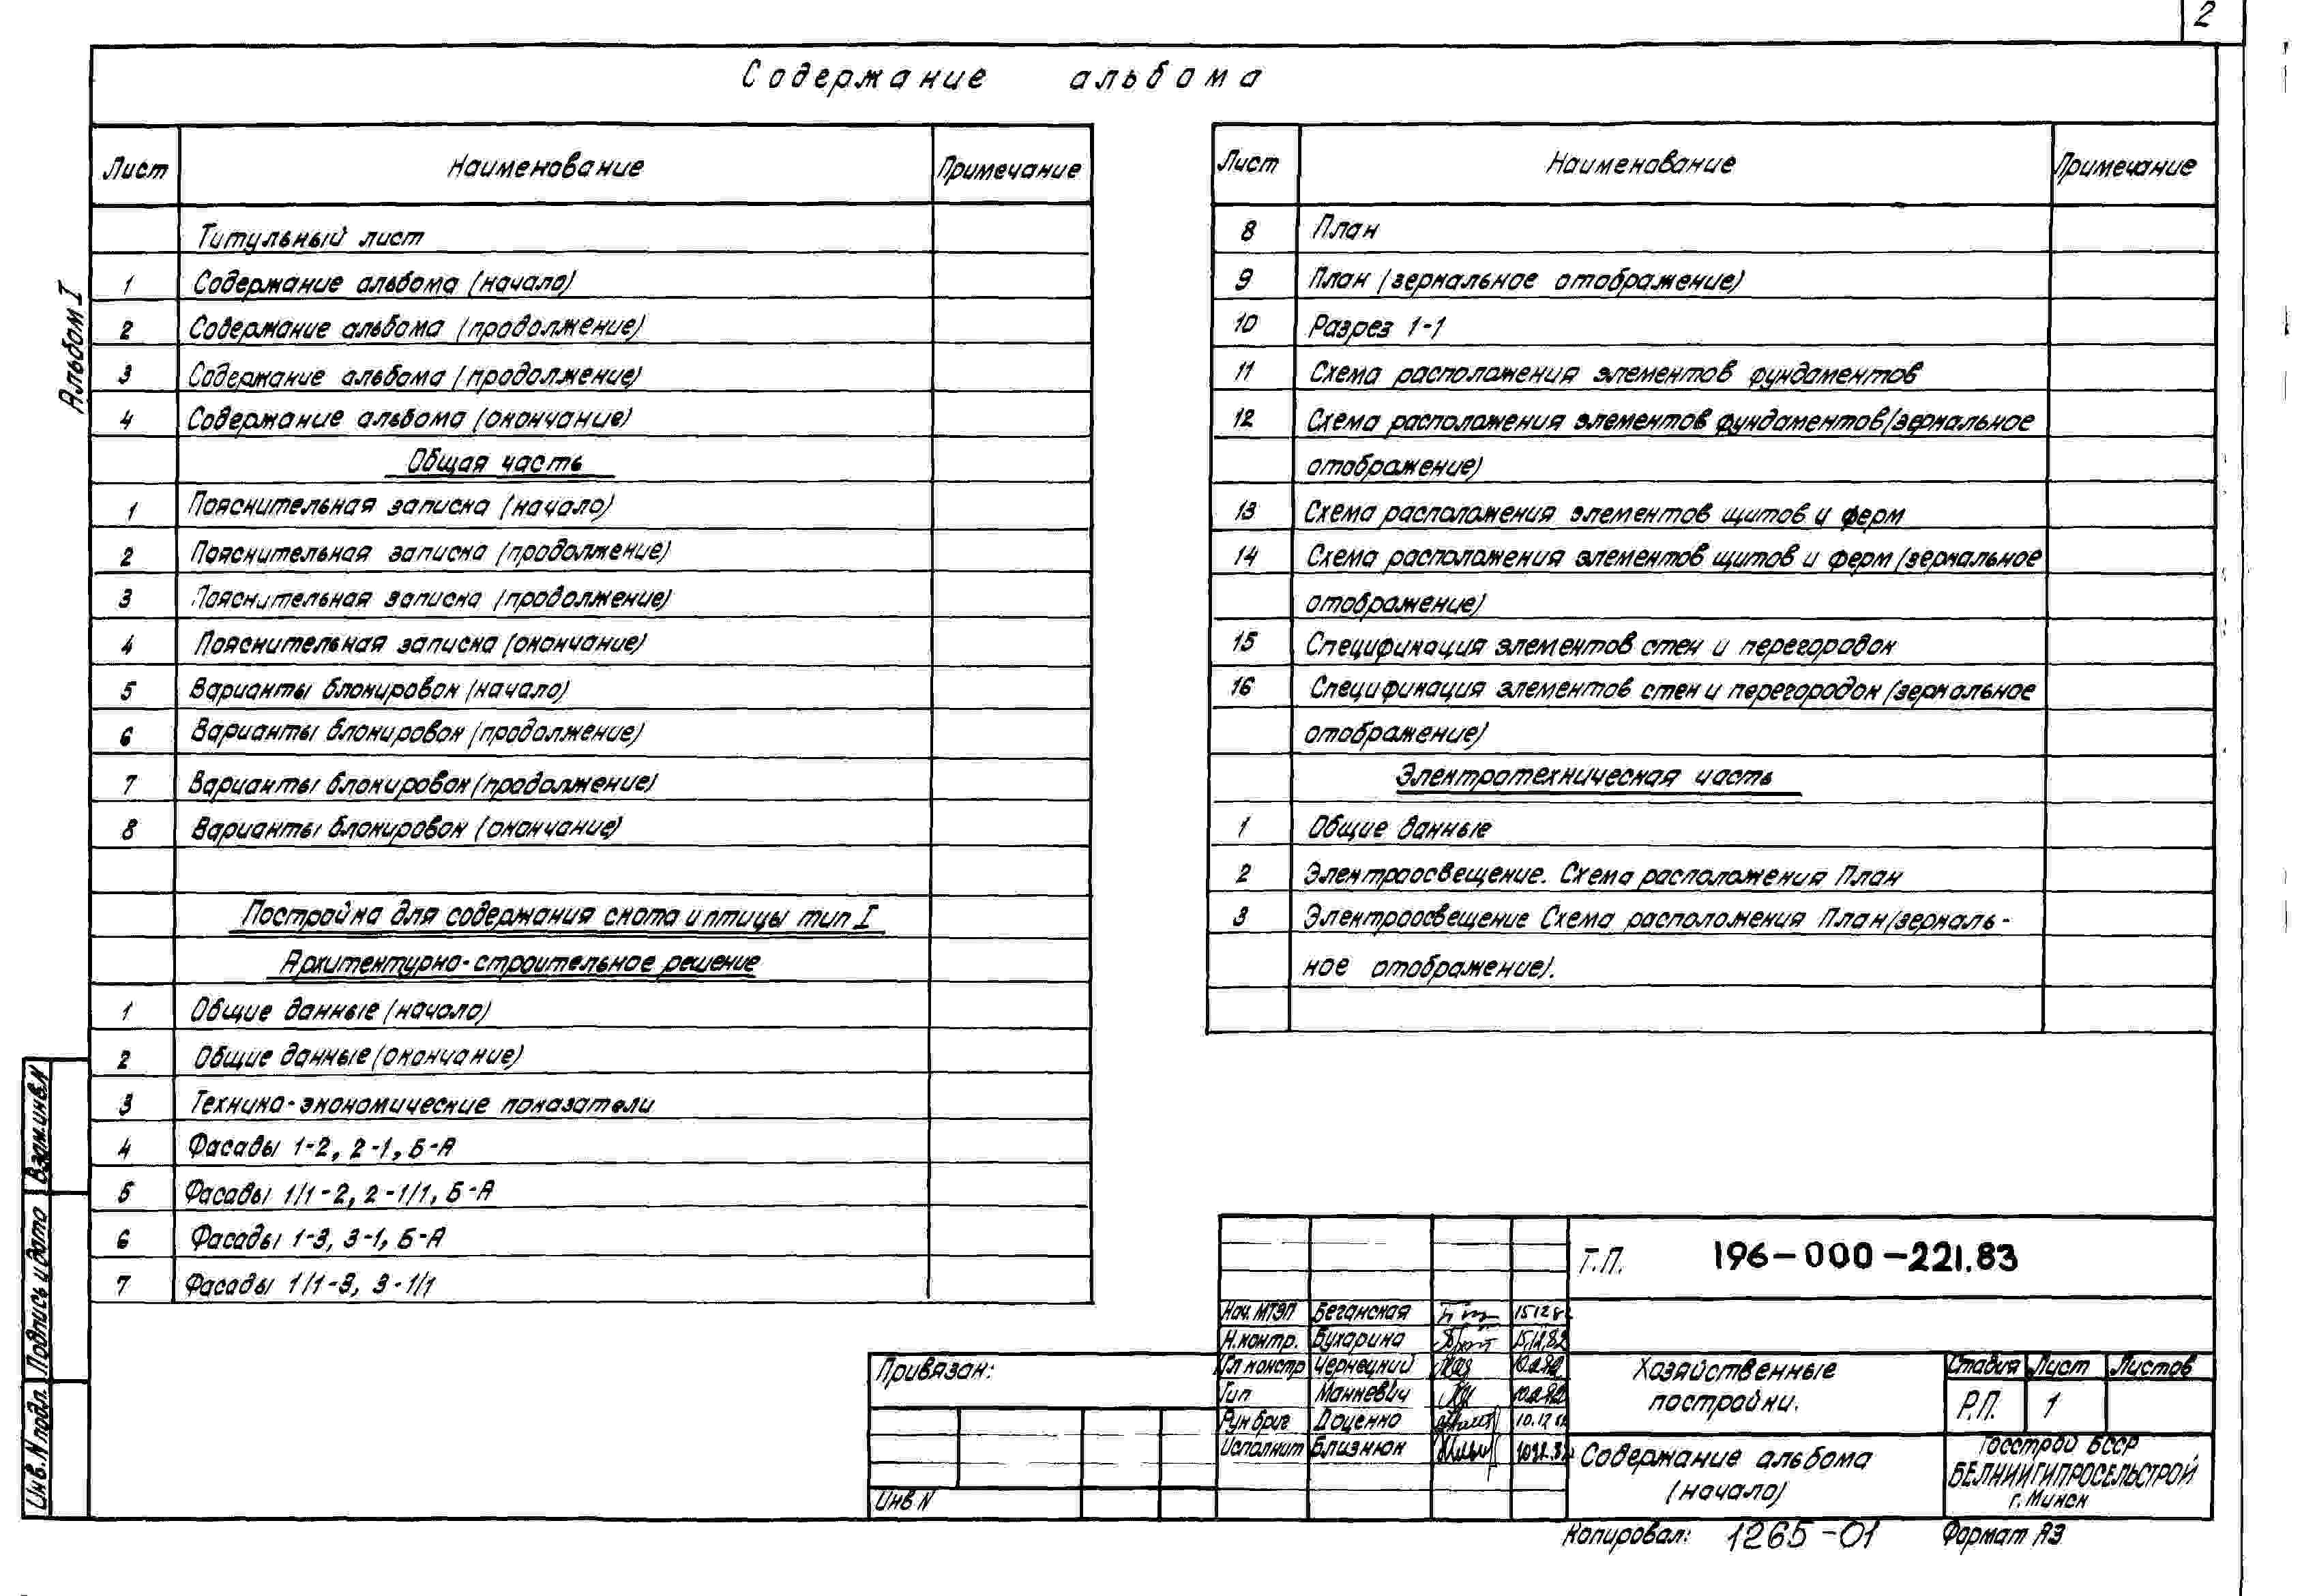 2
Содержание альбома
Альбом I
Лист Наименование Примечание
Титульный лист
1 Содержание альбома (начало)
2 Содержание альбома (продолжение)
3 Содержание альбома (продолжение)
4 Содержание альбома (окончание)
Общая часть
1 Пояснительная записка (начало)
2 Пояснительная записка (продолжение)
3 Пояснительная записка (продолжение)
4 Пояснительная записка (окончание)
5 Варианты блокировок (начало)
6 Варианты блокировок (продолжение)
7 Варианты блокировок (продолжение)
8 Варианты блокировок (окончание)
Постройка для содержания скота и птицы тип I
Архитектурно-строительное решение
1 Общие данные (начало)
2 Общие данные (окончание)
3 Технико-экономические показатели
4 Фасады 1-2, 2-1, Б-А
5 Фасады 1/1-2, 2-1/1, Б-А
6 Фасады 1-3, 3-1, Б-А
7 Фасады 1/1-3, 3-1/1
Лист Наименование Примечание
8 План
9 План (зеркальное отображение)
10 Разрез 1-1
11 Схема расположения элементов фундаментов
12 Схема расположения элементов фундаментов (зеркальное
отображение)
13 Схема расположения элементов щитов и ферм
14 Схема расположения элементов щитов и ферм (зеркальное
отображение)
15 Спецификация элементов стен и перегородок
16 Спецификация элементов стен и перегородок (зеркальное
отображение)
Электротехническая часть
1 Общие данные
2 Электроосвещение. Схема расположения План
3 Электроосвещение Схема расположения План (зеркаль-
ное отображение).
Взам.инв.N
Подпись и дата
Инв.N подл.
Привязан:
Инв N
Нач. МТЭП Беганская 15.12.82
Н.контр. Бухарина 15.12.82
Гл констр Чернецкий
Гип Манкевич
Рук бриг Доценко 10.12.82
Исполнит Близнюк
Т.П. 196-000-221.83
Хозяйственные
постройки.
Стадия Лист Листов
Р.П. 1
Содержание альбома
(начало)
Госстрой БССР
БЕЛНИИГИПРОСЕЛЬСТРОЙ
г. Минск
Копировал: 1265-01 Формат А3